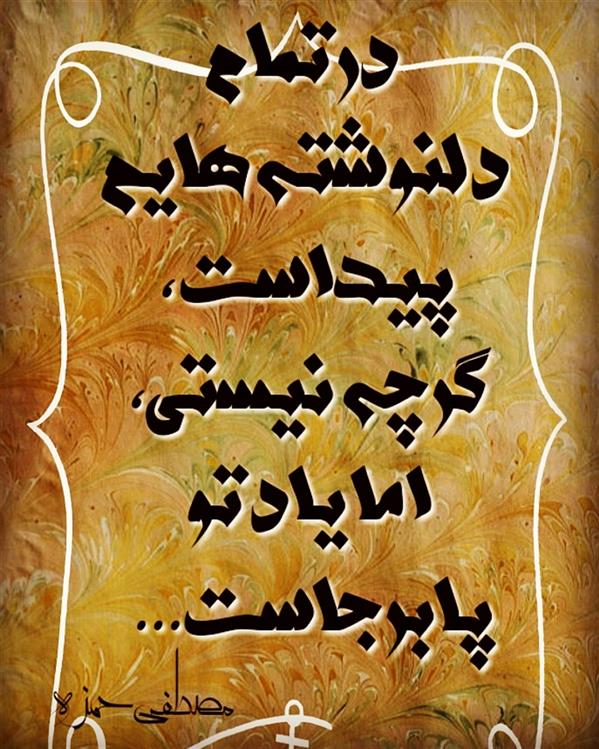 در تمام
دلنوشته هایم
پیداست،
گرچه نیستی،
اما یاد تو
پا بر جاست...
مصطفی حمزه